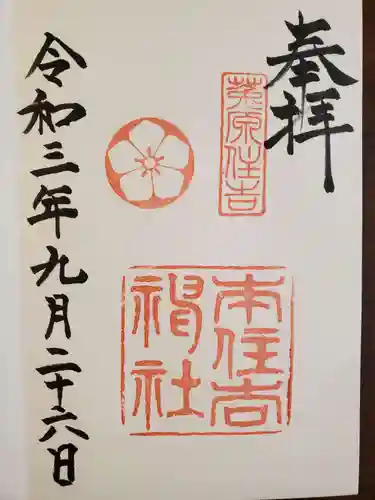 奉拝
菟原住吉
本住吉
神社
令和三年九月二十六日